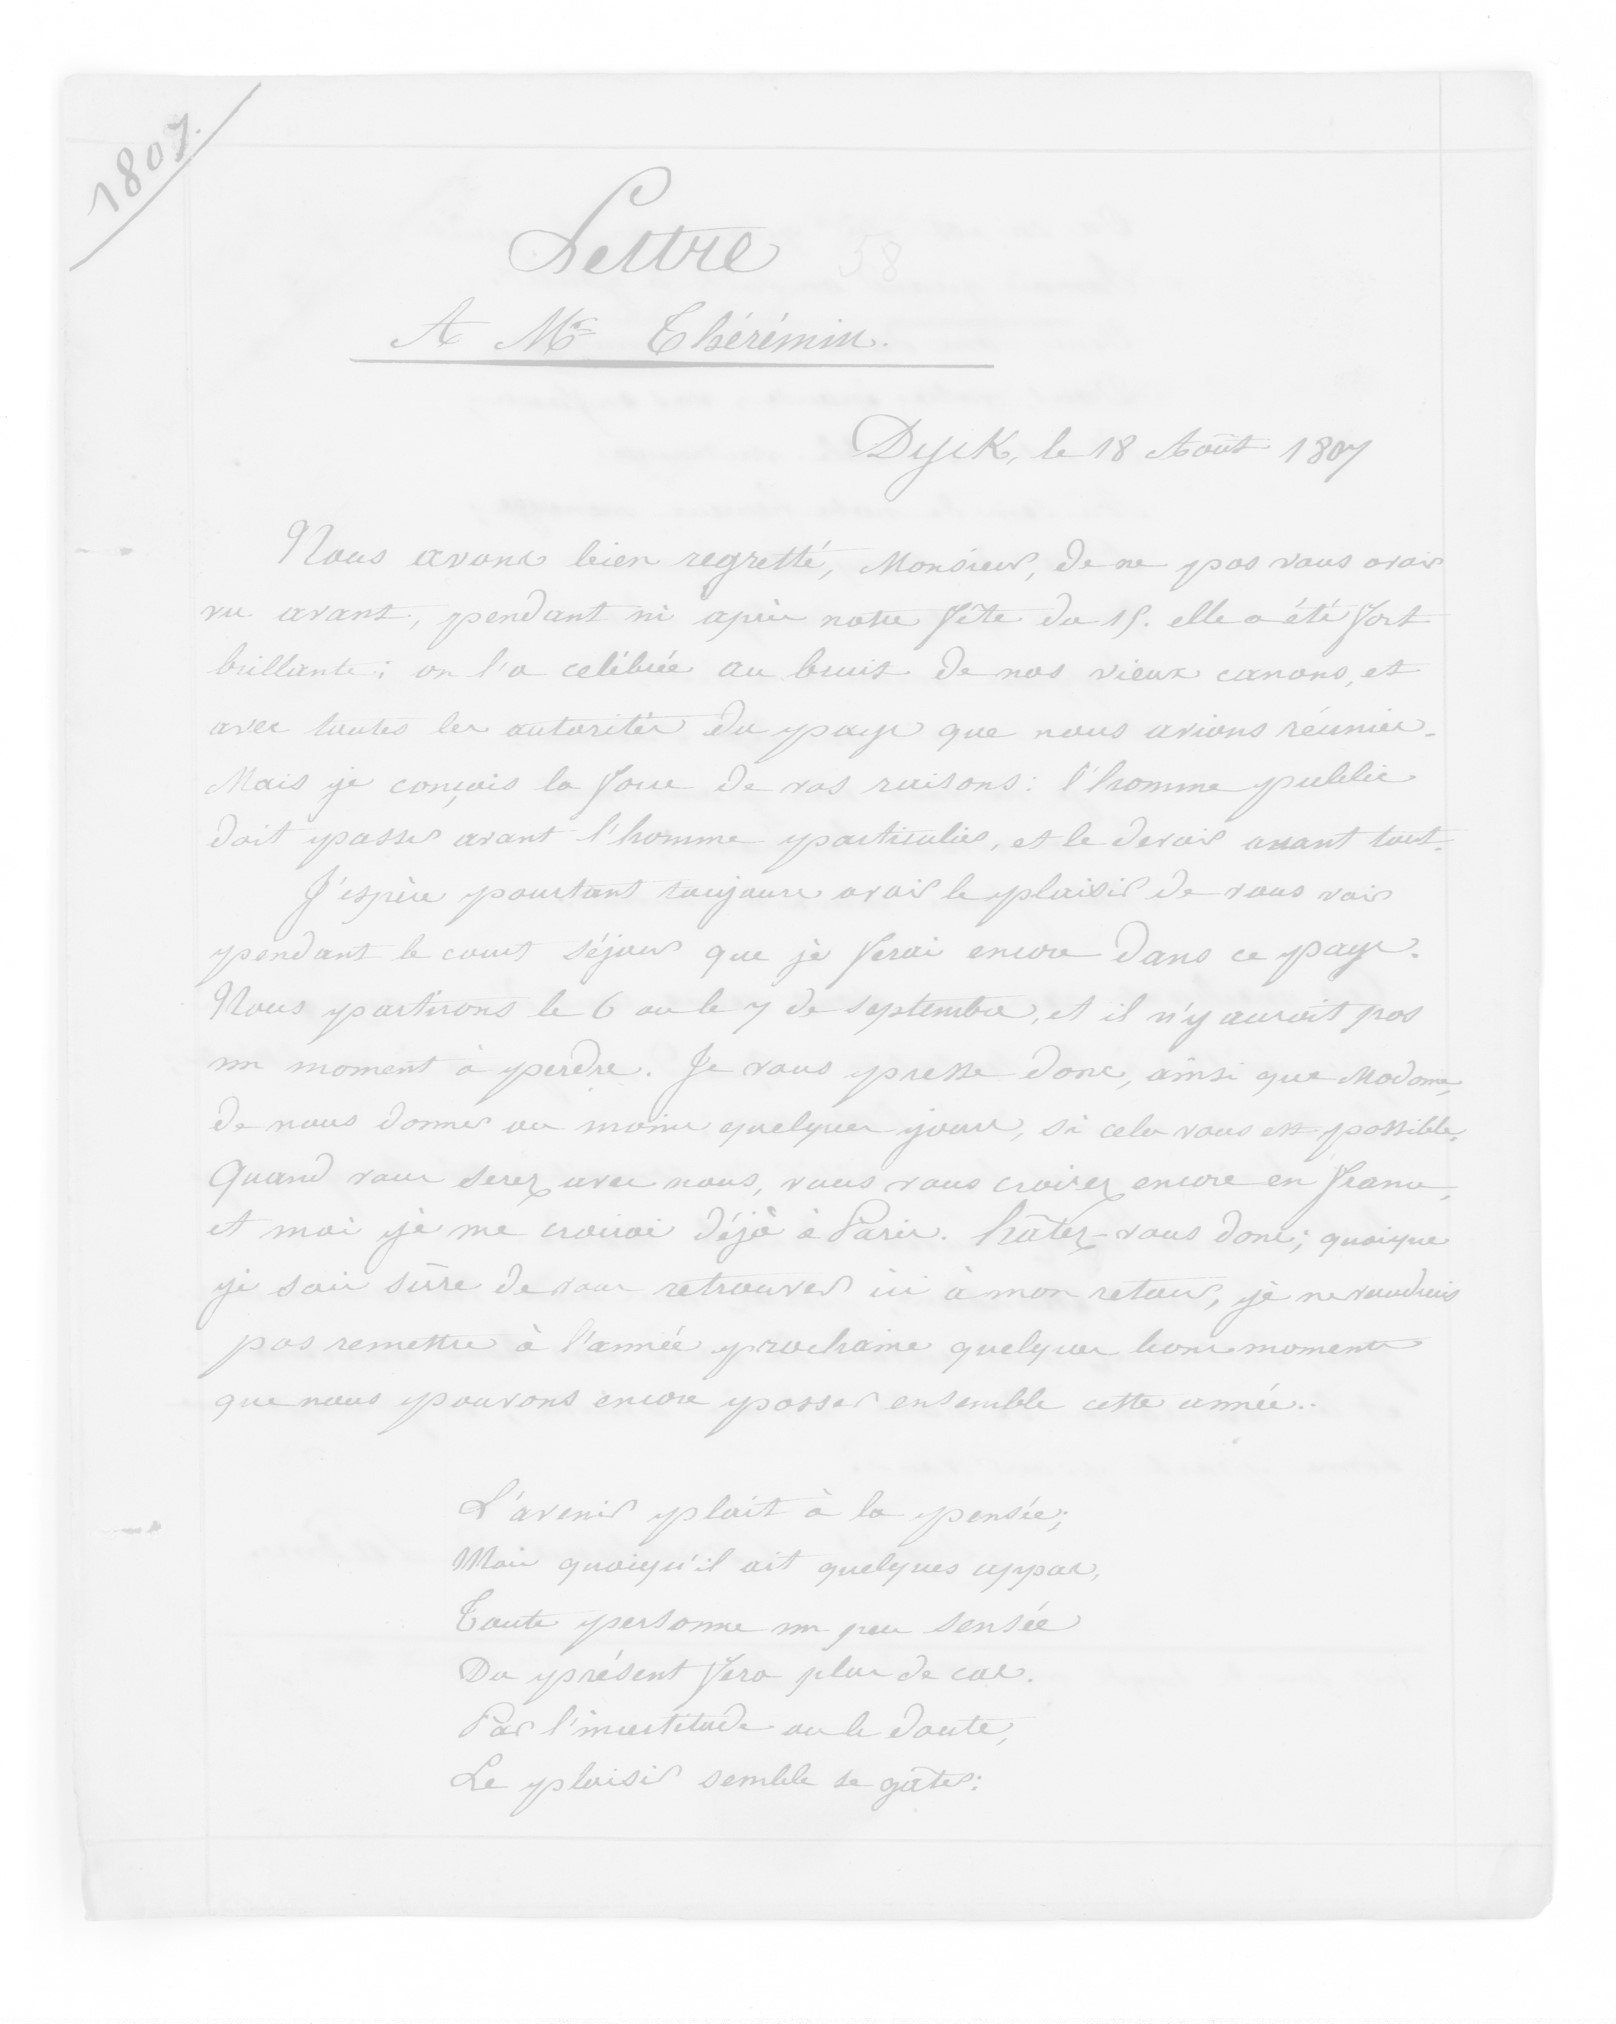 1807.
Lettre 58
A Mr Thérémin.
Dyck, le 18 Août 1807
Nous avons bien regretté, Monsieur, de ne pas vous avoir
vu avant, pendant ni après notre fête du 15. elle a été fort
brillante; on l'a célébrée au bruit de nos vieux canons, et
avec toutes les autorités du pays que nous avions réunies.
Mais je conçois la force de vos raisons: l'homme public
doit passer avant l'homme particulier, et le devoir avant tout.
J'espère pourtant toujours avoir le plaisir de vous voir
pendant le court séjour que je ferai encore dans ce pays.
Nous partirons le 6 ou le 7 de septembre, et il n'y auroit pas
un moment à perdre. Je vous presse donc, ainsi que Madame,
de nous donner au moins quelques jours, si cela vous est possible.
Quand vous serez avec nous, vous vous croirez encore en France,
et moi je me croirai déjà à Paris. hâtez-vous donc; quoique
je sois sûre de vous retrouver ici à mon retour, je ne voudrais
pas remettre à l'année prochaine quelques bons moments
que nous pouvons encore passer ensemble cette année.
L'avenir plait à la pensée;
Mais quoiqu'il ait quelques appas,
Toute personne un peu sensée
Du présent fera plus de cas.
Par l'incertitude ou le doute,
Le plaisir semble se gâter: